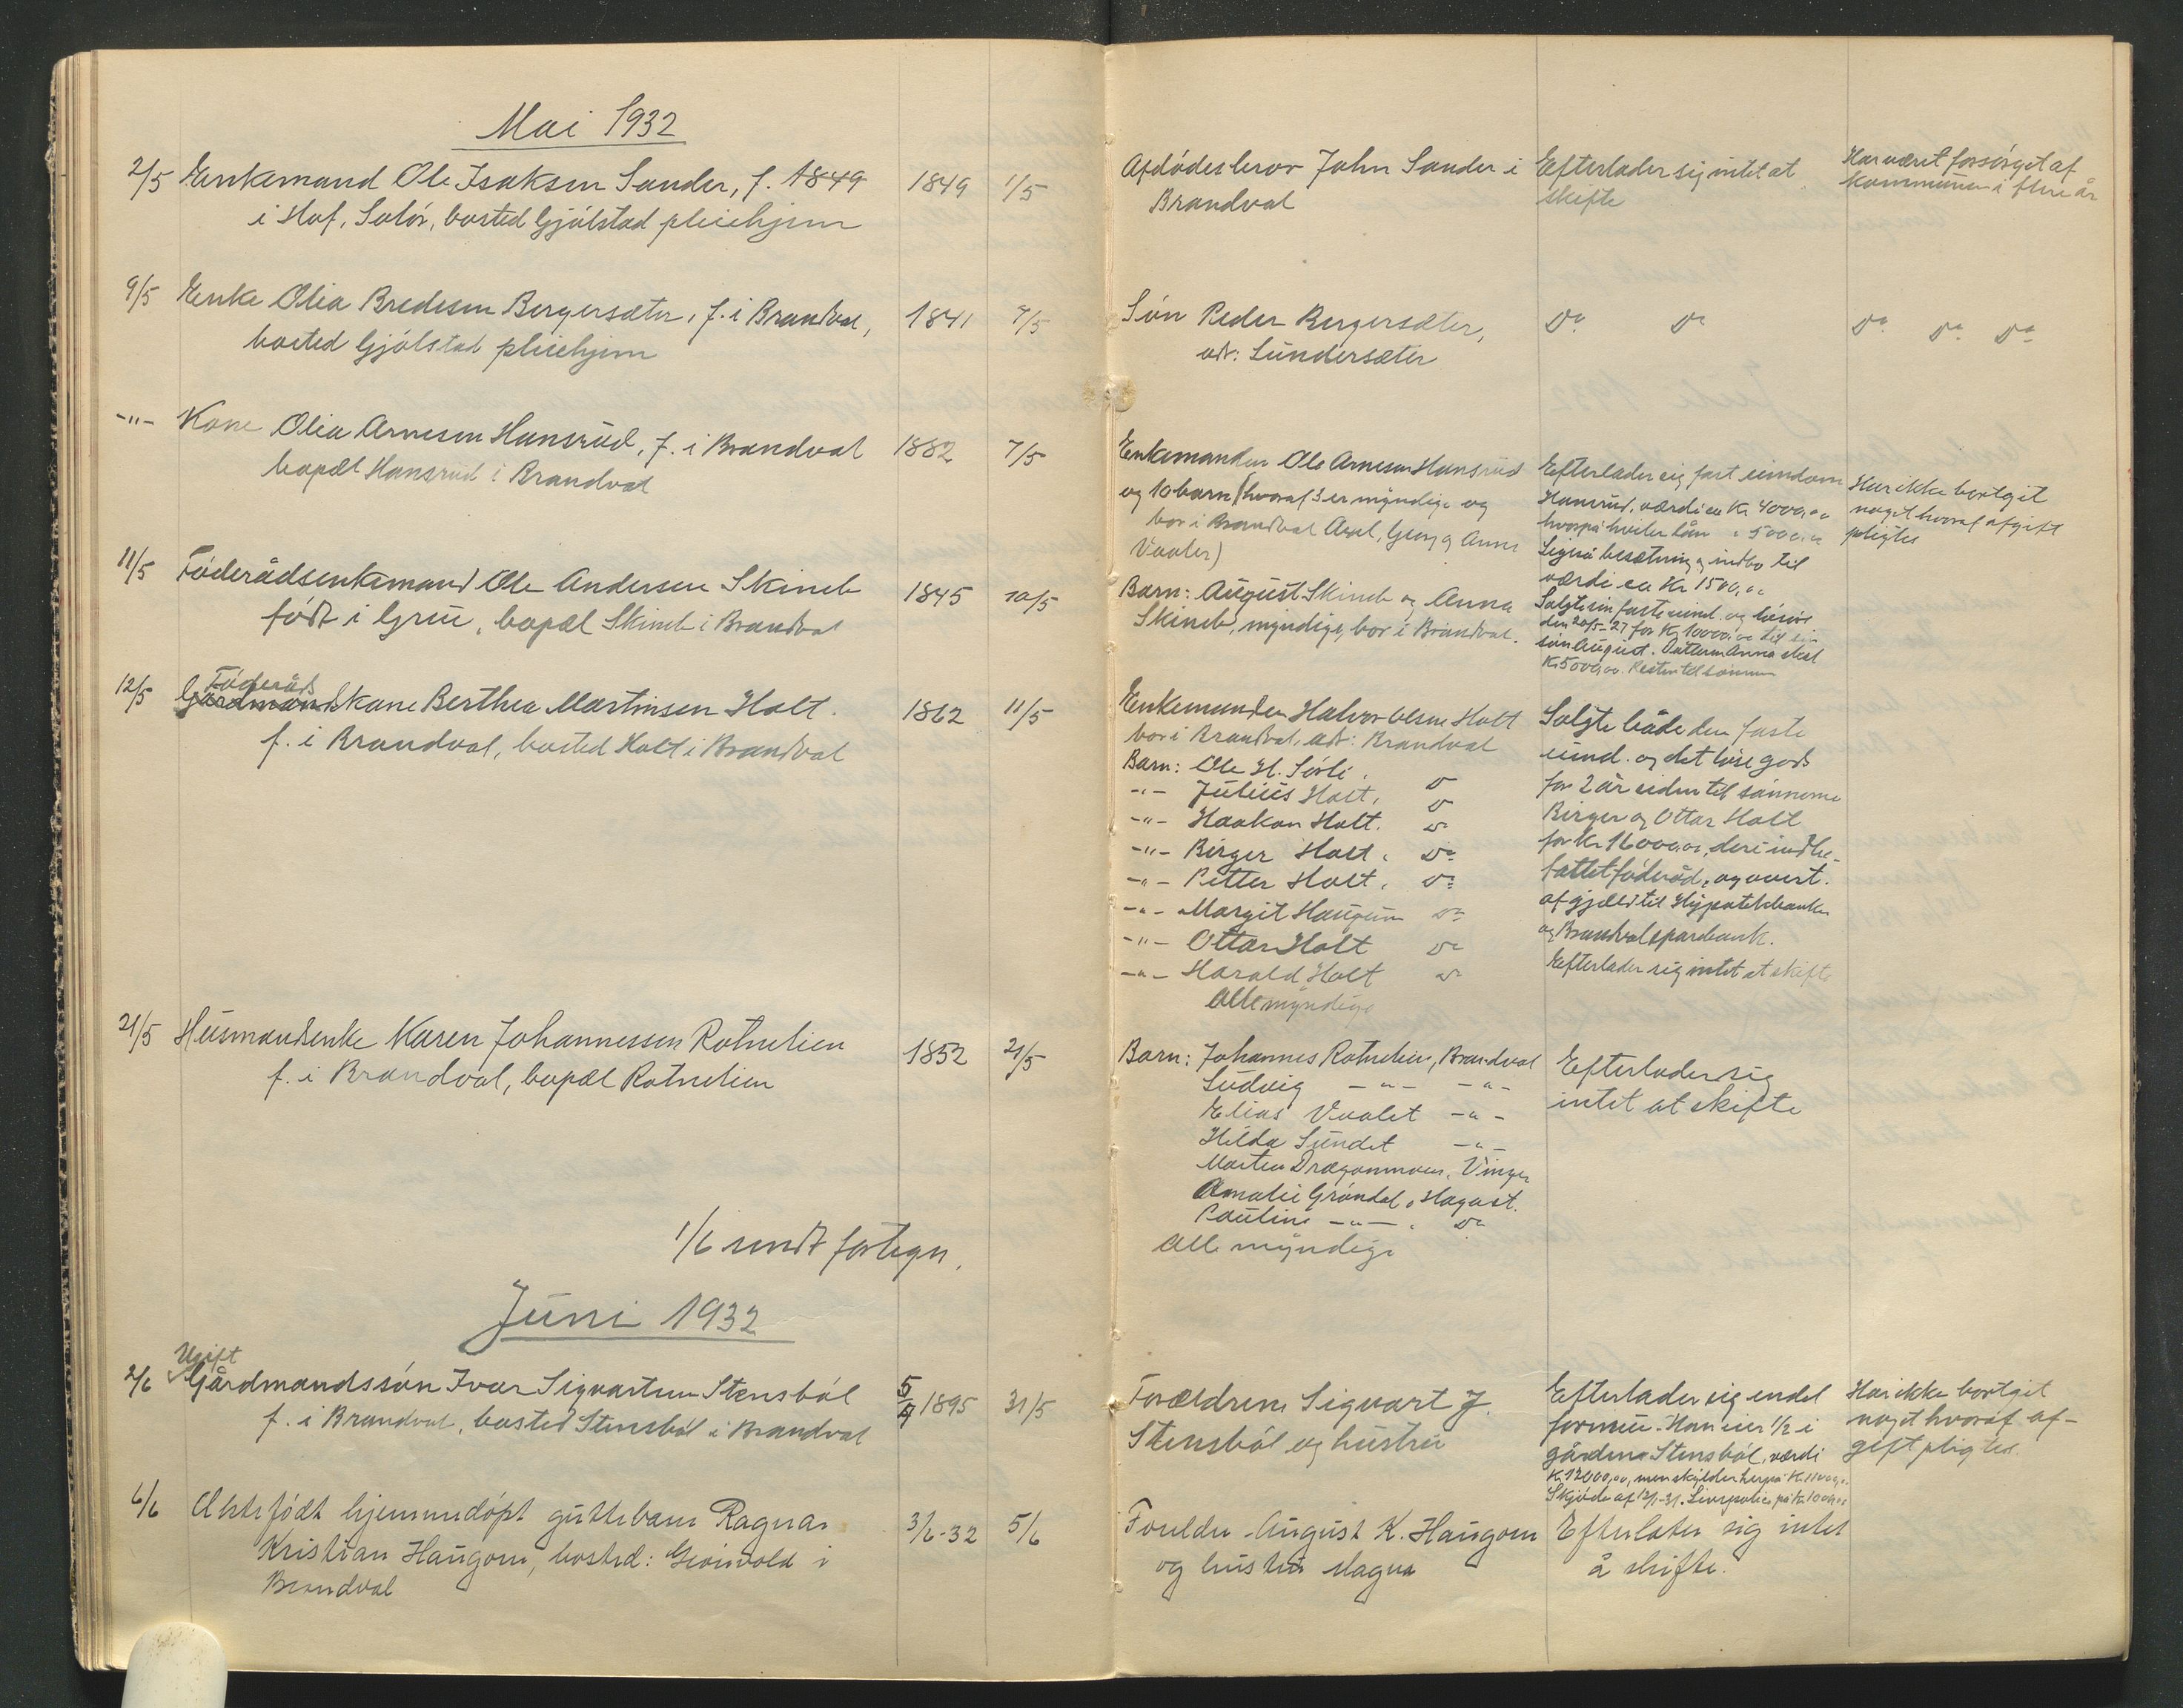 Mai 1932
2/5 Enkemand Ole Isaksen Sander, f. 1849 1849 1/5
i Hof, Solør, bosted Gjølstad pleiehjem
9/5 Enke Olia Bredesen Bergersæter, f. i Brandval, 1841 7/5
bosted Gjølstad pleiehjem
-"- Kone Olia Arnesen Hansrud, f. i Brandval 1882 7/5
bopæl Hansrud i Brandval
11/5 Føderådsenkemand Ole Andersen Skineb 1845 10/5
født i Grue, bopæl Skineb i Brandval
Føderåds
12/5 Gårdmandskone Berthea Martinsen Holt. 1862 11/5
f. i Brandval, bosted Holt i Brandval
21/5 Husmandsenke Karen Johannessen Rotnelien 1852 21/5
f. i Brandval, bopæl Rotnelien
1/6 sendt fortegn.
Juni 1932
Ugift
2/6 Gårdmandssøn Ivar Sigvartsen Stensbøl 5/4 1895 31/5
f. i Brandval, bosted Stensbøl i Brandval
6/6 Ekte født hjemmedøpt guttebarn Ragnar 3/6-32 5/6
Kristian Haugom, bosted: i
Brandval
Afdødes bror John Sander i
Brandval
Efterlader sig intet at
skifte
Har været forsørget af
kommunen i flere år
Søn Peder Bergersæter,
adr: Lundersæter
Do Do
Do Do Do
Enkemanden Ole Arnesen Hansrud
og 10 barn (hvoraf 3 er myndige og
bor i Brandval Axel, Georg og Anna
Vaaler)
Efterlader sig fast eiendom
Hansrud, værdi ca Kr. 4000,oo
hvorpå hviler lån " 500,oo
Ligeså besætning og indbo til
værdi ca Kr 1500,oo
Har ikke bortgit
noget hvoraf afgift
pligtes
Barn: August Skineb og Anna
Skineb, myndige, bor i Brandval.
Solgte sin faste eiend. og løsøre
den 20/5-27 for Kr 10000,oo til
søn August. Datteren Anna skal
Kr 5000,oo. Resten til sønnen
Enkemanden Halvor Olsen Holt
bor i Brandval, adr: Brandval
Barn: Ole H. Sørli, Do
-"- Julius Holt, Do
-"- Haakon Holt. Do
-"- Birger Holt, Do
-"- Petter Holt, Do
-"- Margit Haugum Do
-"- Ottar Holt Do
-"- Harald Holt Do
Alle myndige
Solgte både den faste
eiend. og det løse gods
for 2 år siden til sønnerne
Birger og Ottar Holt
for Kr 16000,oo, deri indbe-
fattet føderåd, og overt.
af gjæld til Hypotekbanken
og Brandval sparebank.
Efterlader sig intet at skifte
Barn: Johannes Rotnelien, Brandval
Ludvig -"- -"-
Elias Vaalet -"-
Hilda Sundet -"-
Marten Vinger
Amalie Grøndal, Magnst.
Pauline -"- , Do
Alle myndige
Efterlader sig
intet at skifte
Forældrene Sigvart J.
Stensbøl og hustru
Efterlader sig endel
formue. Han eier 1/2 i
gården Stensbøl, værdi
Kr 12000,oo, men skylder herpå Kr. 11000,oo
Skjøde af 12/1-31. Livspolice på Kr 1000,oo
Har ikke bortgit
noget hvoraf af-
gift pligtes.
Foreldre August K. Haugom
og hustru Magna
Efterlater sig intet
å skifte.